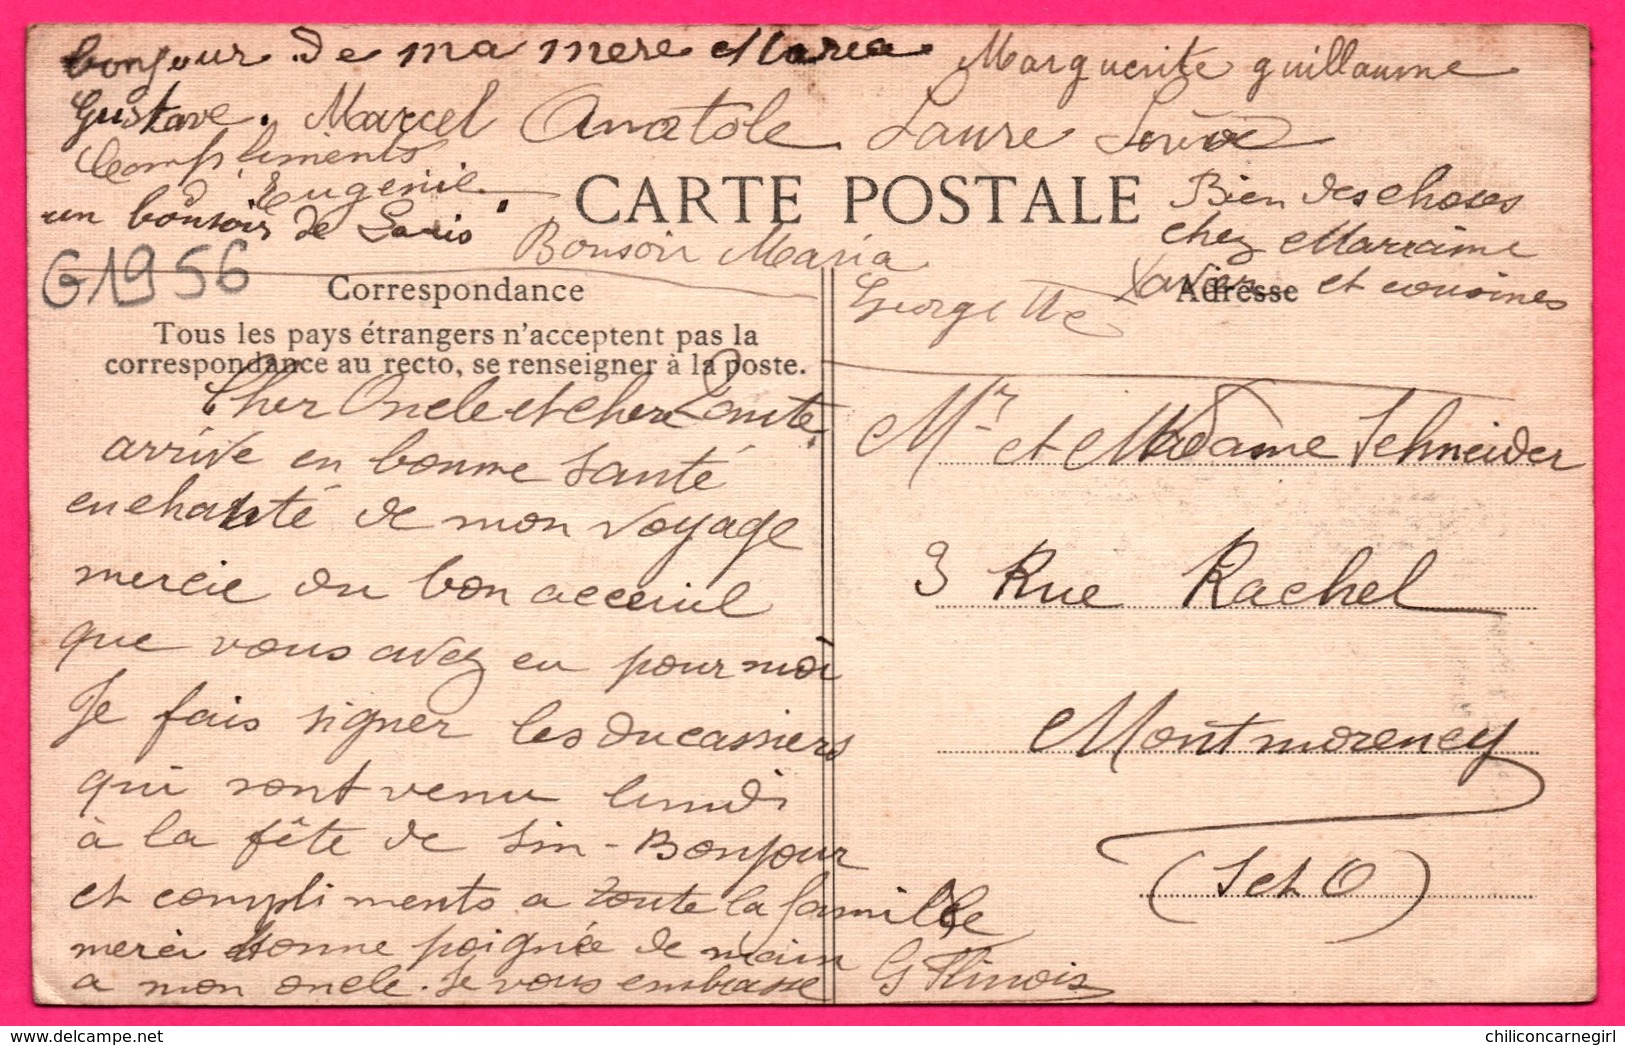 bonjour de ma mere Maria Marguerite guillaume
Gustave. Marcel Anatole Laure
Compliments
Eugenie.
un bonsoir de Louis
Bonsoir Maria
Georgette
Bien des choses
chez Marraine
Xavier et cousines
G1956
CARTE POSTALE
Correspondance
Adresse
Tous les pays étrangers n'acceptent pas la
correspondance au recto, se renseigner à la poste.
Cher Oncle et chere Tante
arrive en bonne santé
enchanté de mon voyage
mercie du bon acceuil
que vous avez eu pour moi
Je fais signer les ducassiers
qui sont venu lundi
à la fête de Sin - Bonjour
et compliments a toute la famille
merci bonne poignée de main
a mon oncle. Je vous embrasse
Mr et Madame Schneider
3 Rue Rachel
Montmorency
(S et O)
chiliconcarnegirl / www.delcampe.net